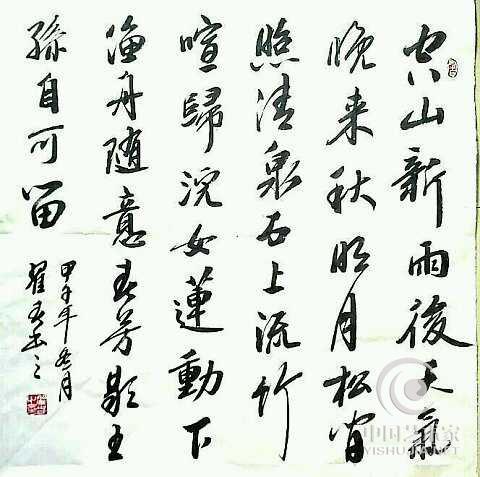 空山新雨後天氣
晚来秋明月松间
照清泉石上流竹
喧歸浣女蓮動下
渔舟随意春芳歇王
孫自可留
甲午年冬月
翟书之
中国艺术家
YISHUJIA.NET